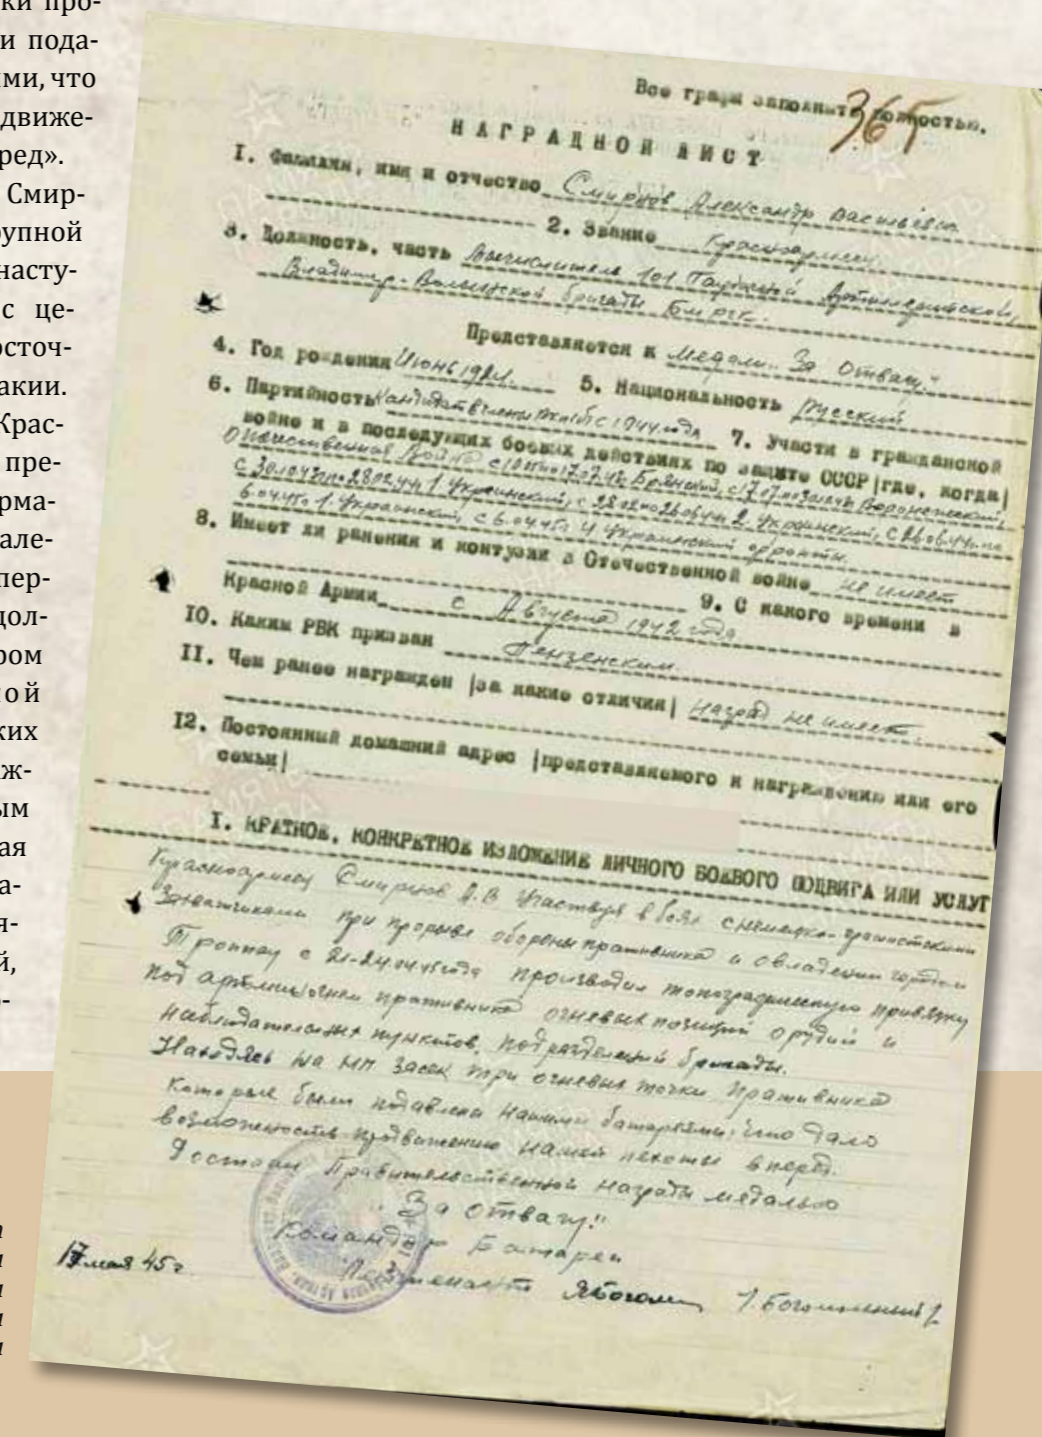 ки про-
и пода-
ми, что
движе-
ред».
Смир-
рупной
насту-
с це-
осточ-
акии.
Крас-
пре-
рма-
але-
пер-
дол-
ром
ной
ких
аж-
ым
ая
а-
я-
й,
о-
365
Все графы заполнить полностью.
НАГРАДНОЙ ЛИСТ
I. Фамилия, имя и отчество Смирнов Александр Васильевич
2. Звание Красноармеец
3. Должность, часть Вычислитель 101 Артиллерийской
Владимир-Волынской бригады БМ РГК.
Представляется к Медали "За Отвагу"
4. Год рождения Июнь 5. Национальность Русский
6. Партийность Кандидат в члены с 1944 года 7. Участи в гражданской
войне и в последующих боевых действиях по защите СССР |где, когда|
Отечественная Война Брянский, Воронежский,
1 Украинский, 2 Украинский,
1 Украинский, с 6.04.45г. 4 Украинский фронты.
8. Имеет ли ранения и контузии в Отечественной войне не имеет
9. С какого времени в
Красной Армии с Августа 1942 года
10. Каким РВК призван Пензенским.
II. Чем ранее награжден |за какие отличия| наград не имеет.
12. Постоянный домашний адрес |представляемого к награждению или его
семьи|
I. КРАТКОЕ, КОНКРЕТНОЕ ИЗЛОЖЕНИЕ ЛИЧНОГО БОЕВОГО ПОДВИГА ИЛИ УСЛУГ
Красноармеец Смирнов А.В. Участвуя в боях с немецко-фашистскими
Захватчиками при прорыве обороны противника и овладении городом
Троппау с 21-24.04.45 года производил топографическую привязку
под артил. огнем противника огневых позиций орудий и
наблюдательных пунктов, подразделений бригады.
Находясь на НП засек три огневых точки противника
которые были подавлены нашими батареями, что дало
возможность продвижению нашей пехоты вперед.
Достоин Правительственной награды медалью
"За отвагу."
Командир Батареи
17 мая 45г